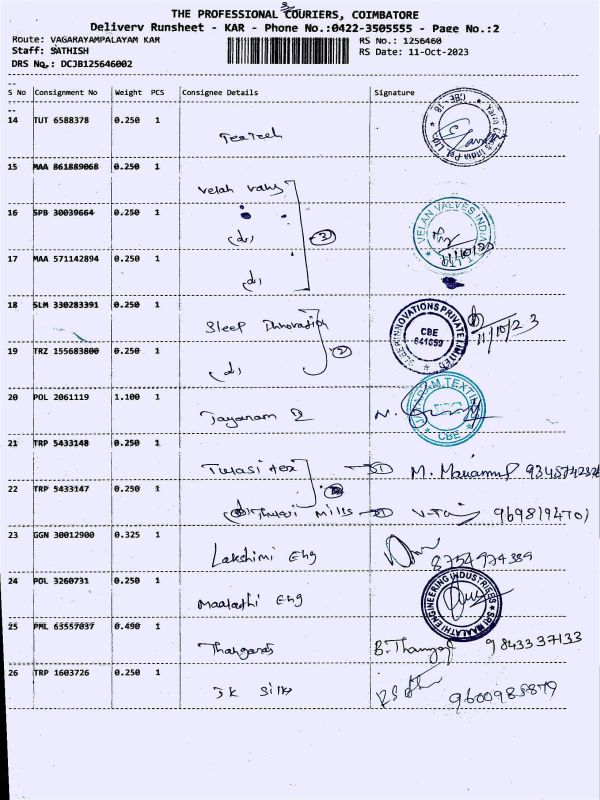 THE PROFESSIONAL COURIERS, COIMBATORE
Delivery Runsheet - KAR - Phone No.:0422-3505555 - Page No.:2
Route: VAGARAYAMPALAYAM KAR RS No.: 1256460
Staff: SATHISH RS Date: 11-Oct-2023
DRS No.: DCJB125646002
S No Consignment No Weight PCS Consignee Details Signature
14 TUT 6588378 0.250 1
15 MAA 861889068 0.250 1 Velan Valves
16 SPB 30039664 0.250 1 (d) (3) VELAN VALVES INDIA
17 MAA 571142894 0.250 1 (d)
18 SLM 330283391 0.250 1 Sleep Innovation SLEEP INNOVATIONS PRIVATE LIMITED CBE 641659 11/10/23
19 TRZ 155683800 0.250 1 (d) (2)
20 POL 2061119 1.100 1 Jayaram CBE
21 TRP 5433148 0.250 1 Tulasi tex
22 TRP 5433147 0.250 1 Thulasi Mills 9698194701
23 GGN 30012900 0.325 1 Lakshimi Eng 8754974389
24 POL 3260731 0.250 1 Maalathi Eng SRI MAALATHI ENGINEERING INDUSTRIES
25 PML 63557037 0.490 1 9843337133
26 TRP 1603726 0.250 1 JK Silks 9600985879